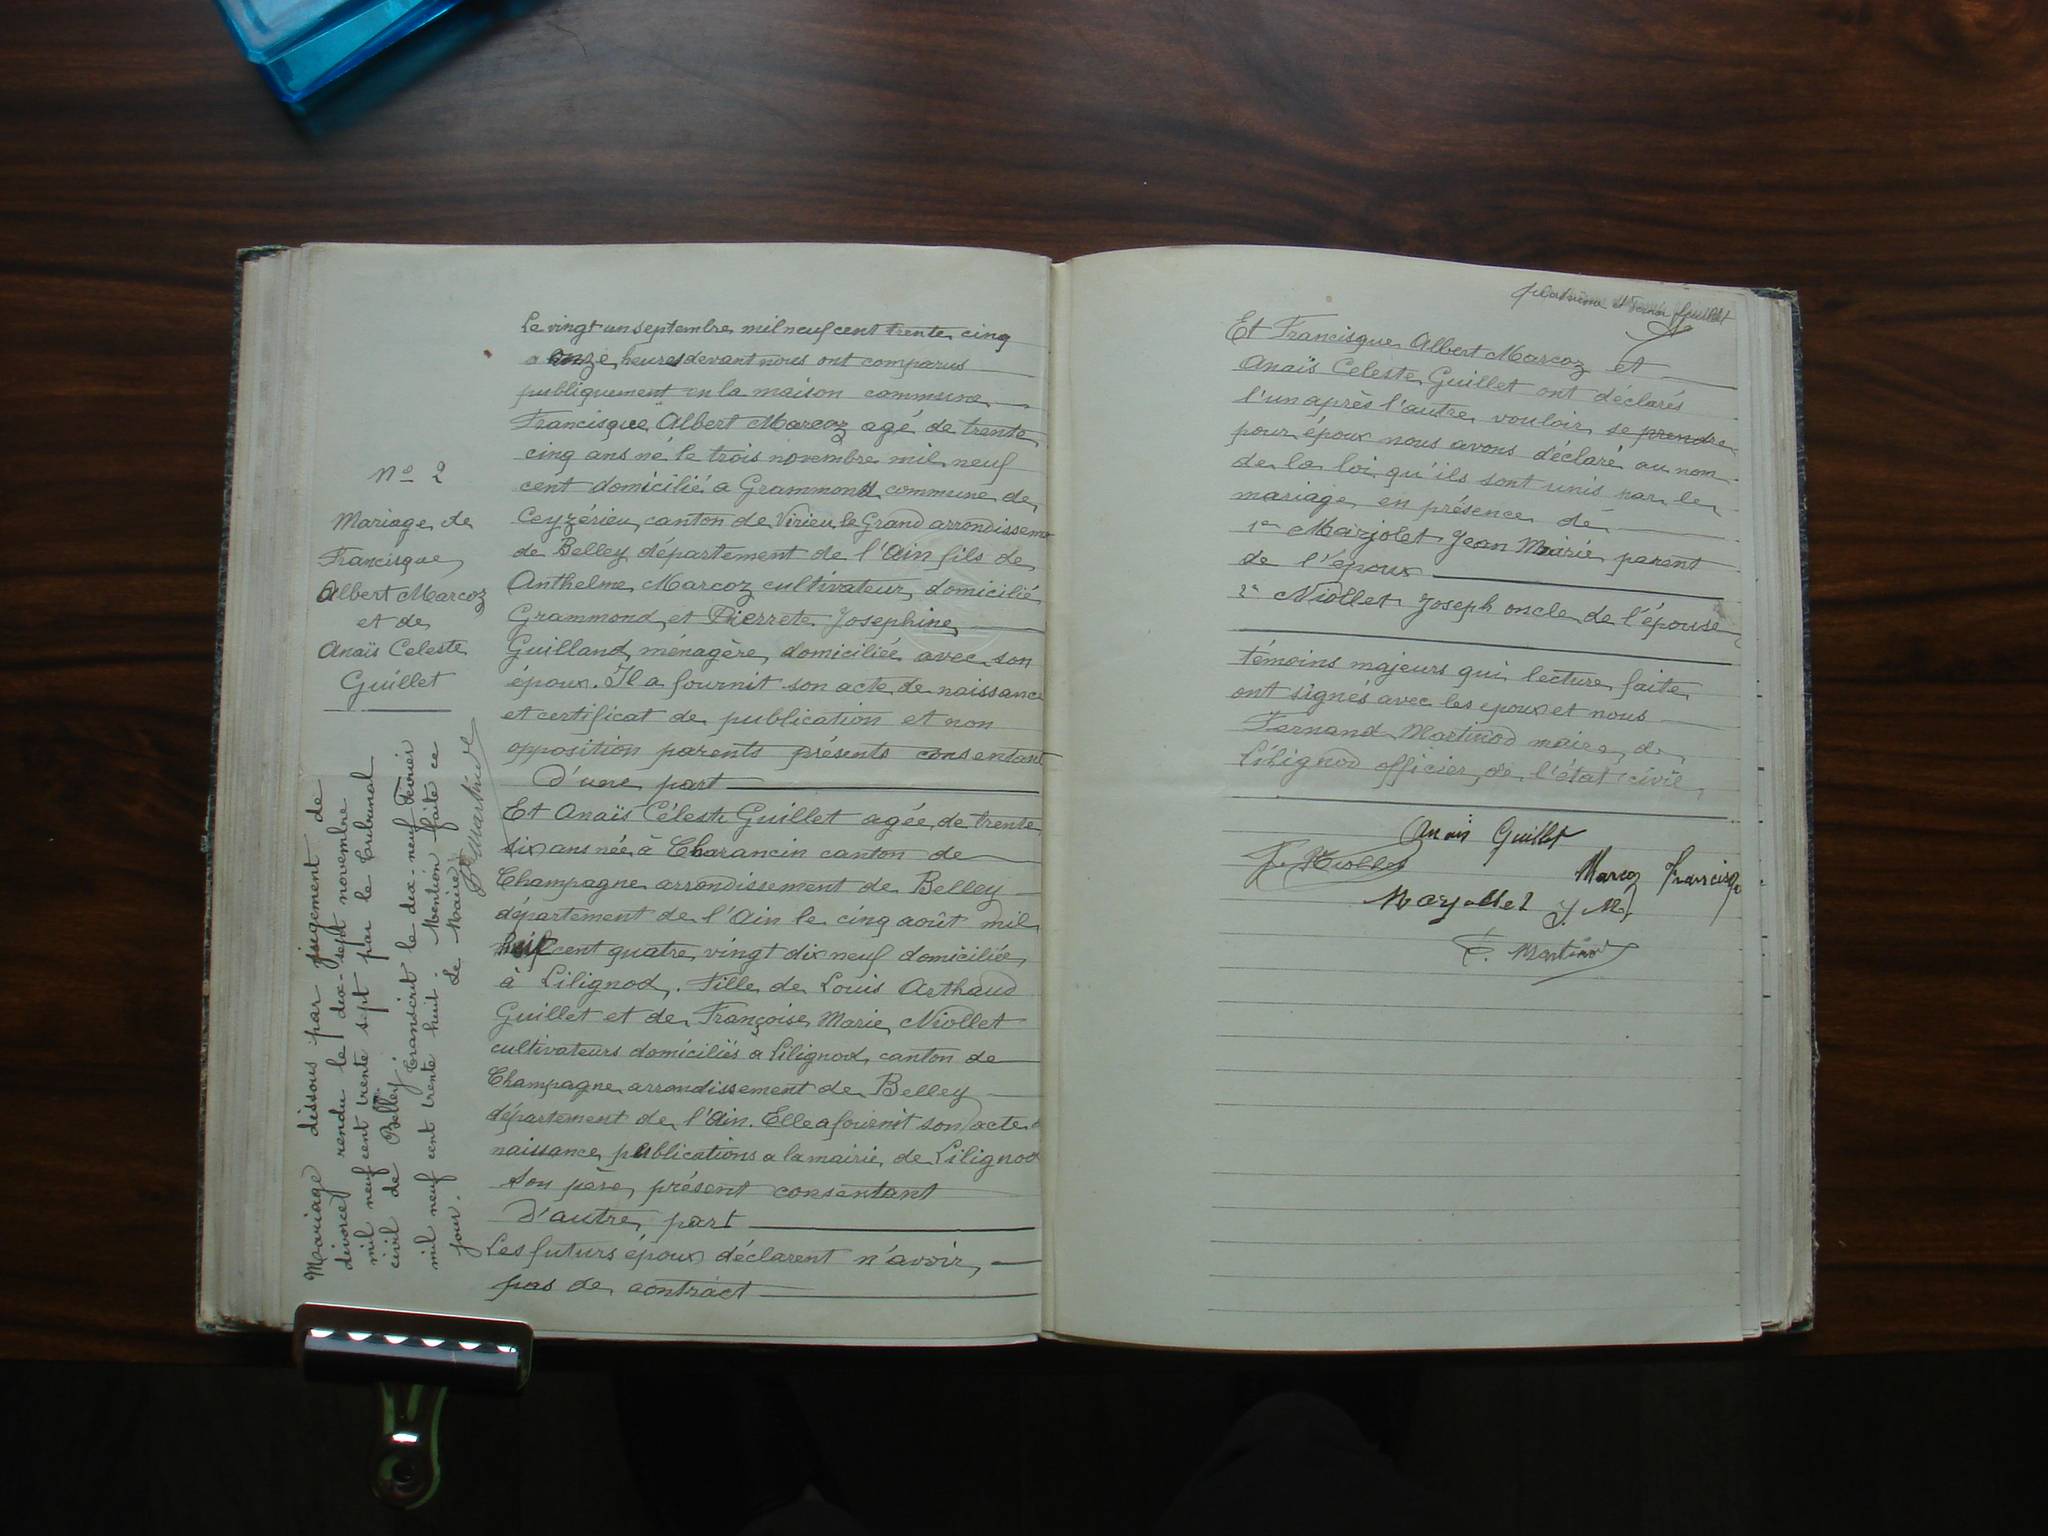 No 2
Mariage de
Francisque
Albert Marcoz
et de
Anaïs Celeste
Guillet
Mariage dissous par jugement de
divorce rendu le dix-sept novembre
mil neuf cent trente sept par le Tribunal
civil de Belley Transcrit le dix-neuf Février
mil neuf cent trente huit. Mention faite ce
jour. Le Maire
F. Martinod
Le vingt un septembre mil neuf cent trente cinq
a onze heures devant nous ont comparus
publiquement en la maison commune
Francisque Albert Marcoz agé de trente
cinq ans né le trois novembre mil neuf
cent domicilié a Grammond commune de
Ceyzérieu canton de Virieu le Grand arrondisseme
de Belley département de l'Ain fils de
Anthelme Marcoz cultivateur domicilié
Grammond et Pierrete Josephine
Guilland ménagère domiciliée avec son
époux. Il a fournit son acte de naissance
et certificat de publication et non
opposition parents présents consentant
d'une part
Et Anaïs Céleste Guillet agée de trente
six ans née à Charancin canton de
Champagne arrondissement de Belley
département de l'Ain le cinq août mil
huit cent quatre vingt dix neuf domiciliée
à Lilignod. Fille de Louis Arthaud
Guillet et de Françoise Marie Niollet
cultivateurs domiciliés a Lilignod canton de
Champagne arrondissement de Belley
département de l'Ain. Elle a fournit son acte
naissance publications a la mairie de Lilignod
Son père présent consentant
D'autre part
Les futurs époux déclarent n'avoir
pas de contract
Guillet
Et Francisque Albert Marcoz et
Anaïs Celeste Guillet ont déclarés
l'un après l'autre vouloir se prendre
pour époux nous avons déclaré au nom
de la loi qu'ils sont unis par le
mariage en présence de
1er Marjolet Jean Marie parent
de l'époux
2e Niollet Joseph oncle de l'épouse
témoins majeurs qui lecture faite
ont signés avec les epoux et nous
Fernand Martinod maire de
Lilignod officier de l'état civil
Anaïs Guillet
J. Niollet
Marcoz Francisq
Marjollet J. M.
F. Martinod